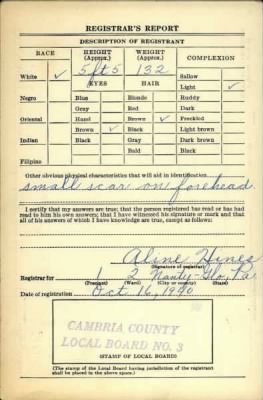 REGISTRAR'S REPORT
DESCRIPTION OF REGISTRANT
RACE HEIGHT (Approx.) WEIGHT (Approx.) COMPLEXION
5 ft 5 132
White ✓ EYES HAIR Sallow
Light ✓
Negro Blue Blonde Ruddy
Gray Red Dark
Oriental Hazel Brown ✓ Freckled
Brown ✓ Black Light brown
Indian Black Gray Dark brown
Bald Black
Filipino
Other obvious physical characteristics that will aid in identification
small scar on forehead.
I certify that my answers are true; that the person registered has read or has had
read to him his own answers; that I have witnessed his signature or mark and that
all of his answers of which I have knowledge are true, except as follows:
Aline Hines
(Signature of registrar)
Registrar for 1 2 Nanty-Glo, Pa.
(Precinct) (Ward) (City or county) (State)
Date of registration Oct 16, 1940
CAMBRIA COUNTY
LOCAL BOARD NO. 3
(STAMP OF LOCAL BOARD)
(The stamp of the Local Board having jurisdiction of the registrant
shall be placed in the above space.)